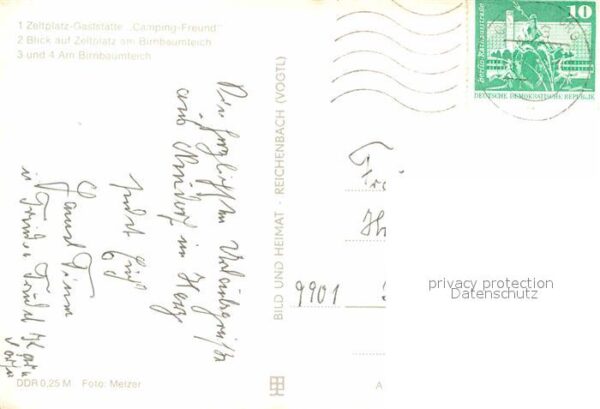 1 Zeltplatz-Gaststätte „Camping-Freund"
2 Blick auf Zeltplatz am Birnbaumteich
3 und 4 Am Birnbaumteich
10
Berlin-Rathausstraße
DEUTSCHE DEMOKRATISCHE REPUBLIK
Die herzlichsten Urlaubsgrüße
aus Neudorf im Harz
sendet Euch
BILD UND HEIMAT · REICHENBACH (VOGTL)
9901
privacy protection
Datenschutz
DDR 0,25 M Foto: Meizer
A